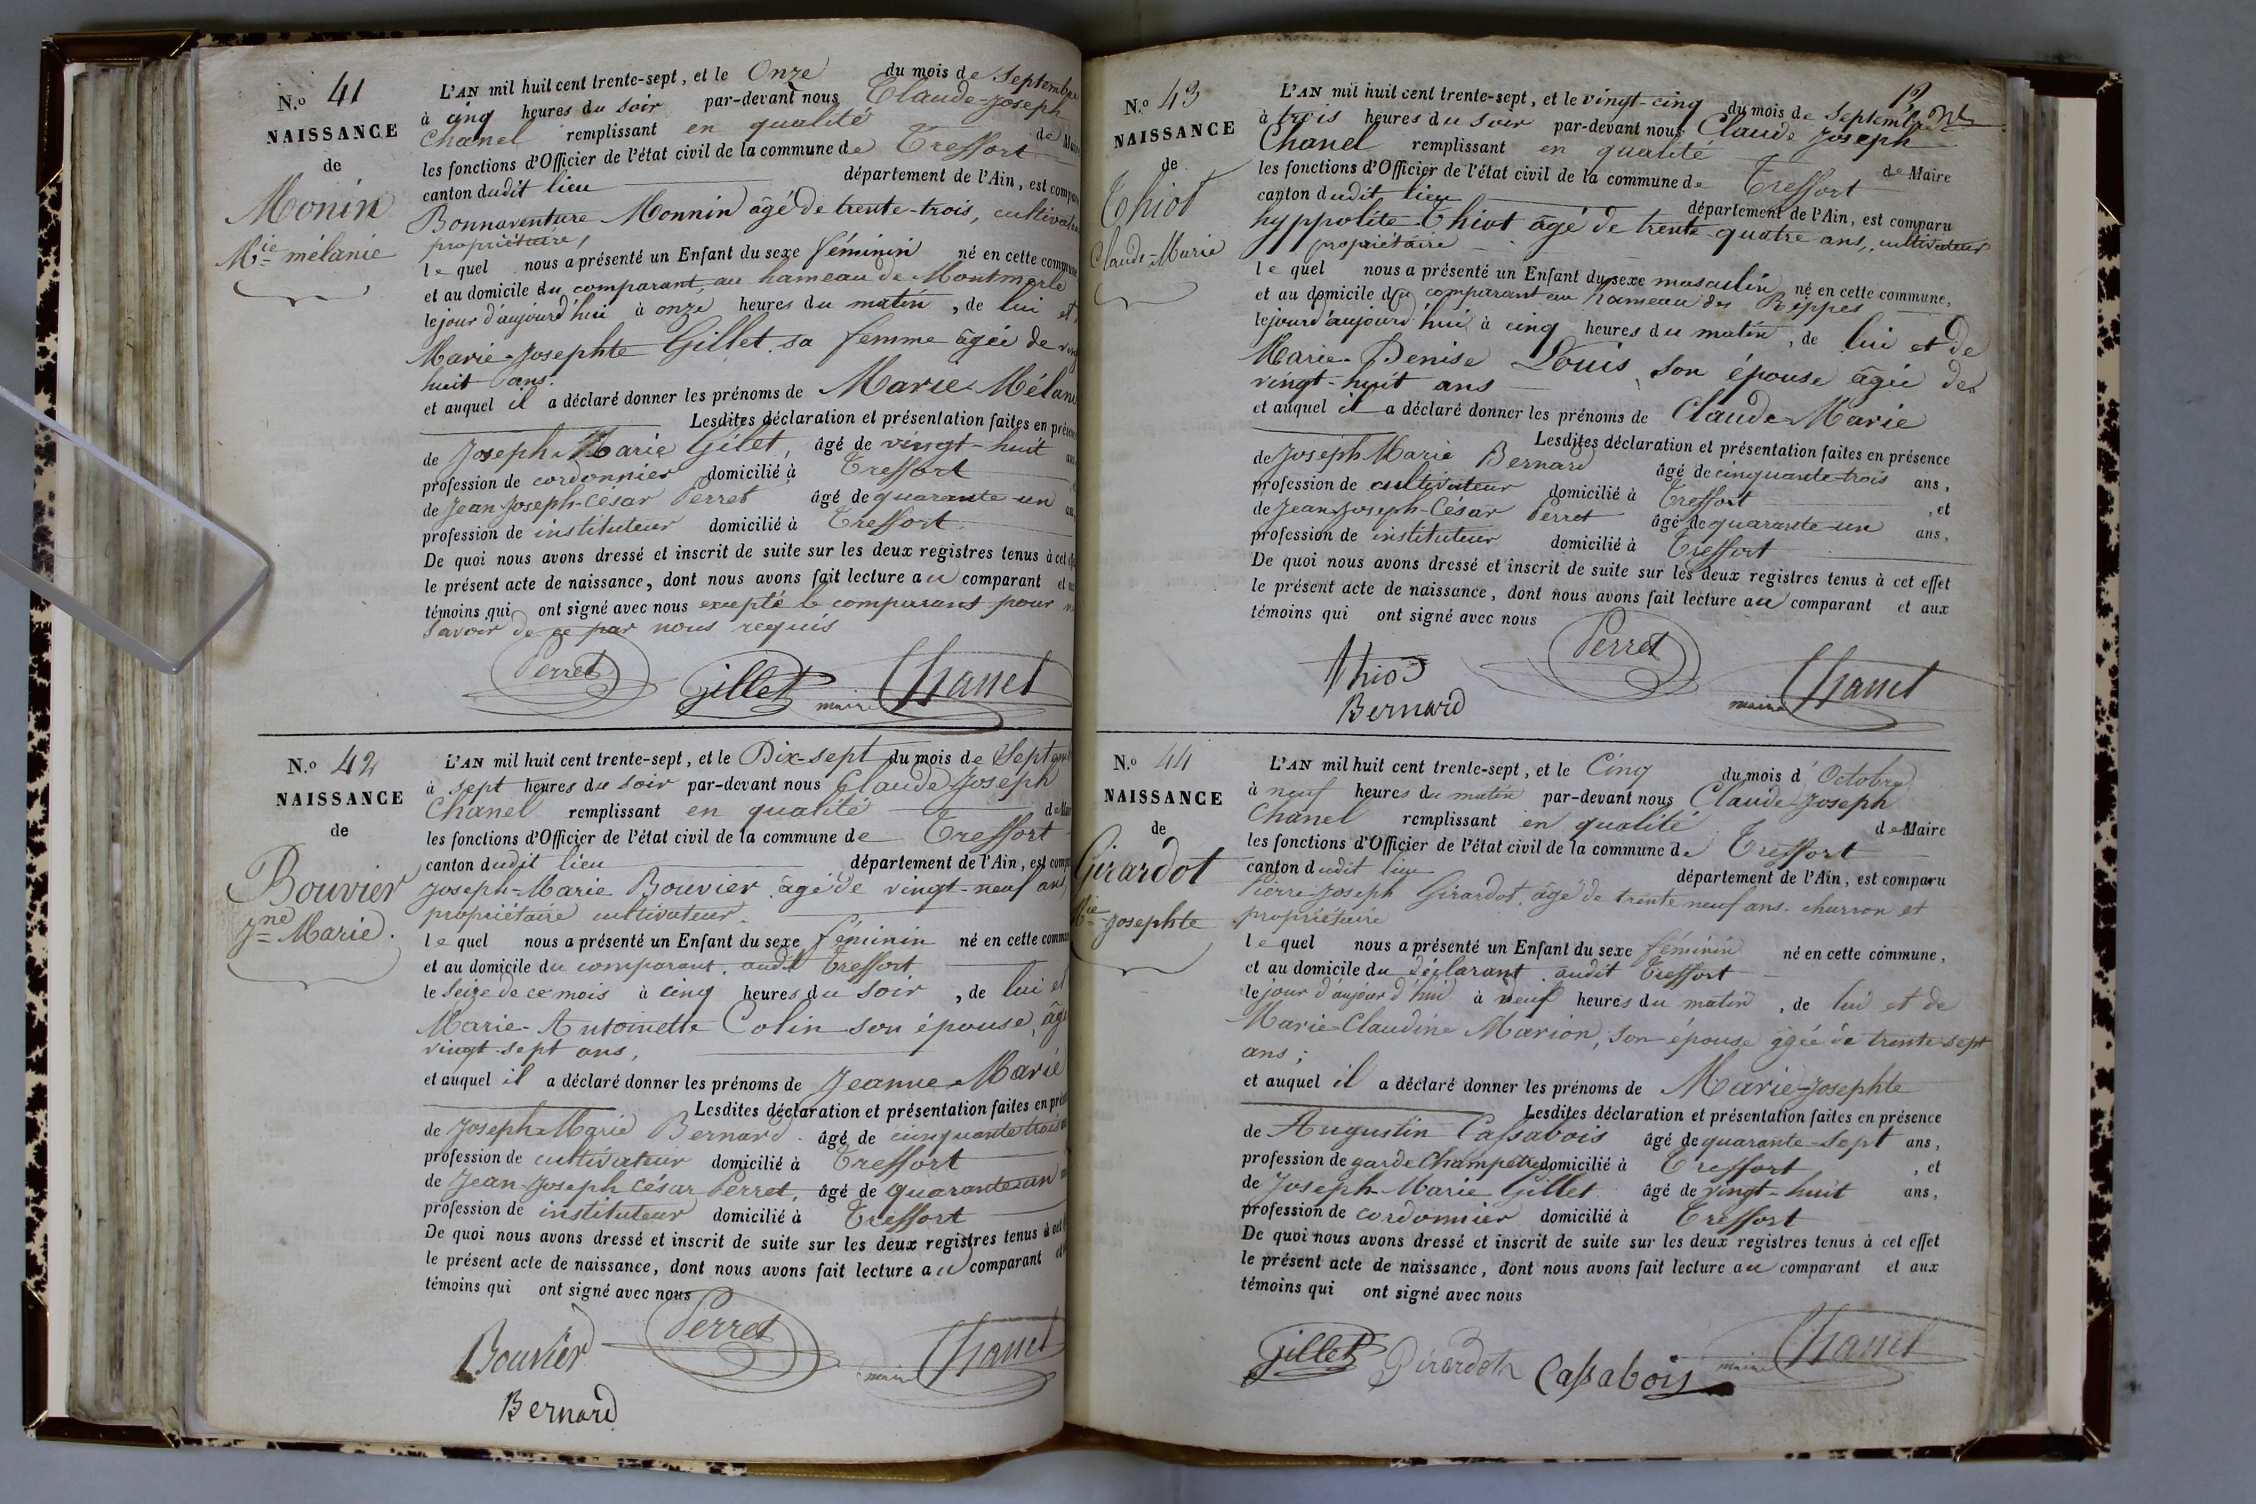 N.º 41
NAISSANCE
de
Monin
Mie mélanie
L'AN mil huit cent trente-sept, et le Onze du mois de Septembre
à cinq heures du soir par-devant nous Claude-Joseph
Chanel remplissant en qualité de Maire
les fonctions d'Officier de l'état civil de la commune de Treffort
canton dudit lieu département de l'Ain, est comparu
Bonnaventure Monnin âgé de trente-trois, cultivateur
propriétaire,
lequel nous a présenté un Enfant du sexe féminin né en cette commune
et au domicile du comparant, au hameau de Montmerle
le jour d'aujourd'hui à onze heures du matin, de lui et
Marie-Josephte Gillet sa femme âgée de vingt
huit ans.
et auquel il a déclaré donner les prénoms de Marie-Mélanie
Lesdites déclaration et présentation faites en présence
de Joseph-Marie Gilet, âgé de vingt-huit ans
profession de cordonnier domicilié à Treffort
de Jean-Joseph-César Perret âgé de quarante-un ans
profession de instituteur domicilié à Treffort.
De quoi nous avons dressé et inscrit de suite sur les deux registres tenus à cet effet
le présent acte de naissance, dont nous avons fait lecture au comparant et aux
témoins qui ont signé avec nous excepté le comparant pour ne
savoir de ce par nous requis
Perret Gillet maire Chanel
N.º 42
NAISSANCE
de
Bouvier
Jne Marie.
L'AN mil huit cent trente-sept, et le Dix-sept du mois de Septembre
à sept heures du soir par-devant nous Claude Joseph
Chanel remplissant en qualité de Maire
les fonctions d'Officier de l'état civil de la commune de Treffort
canton dudit lieu département de l'Ain, est comparu
Joseph-Marie Bouvier âgé de vingt-neuf ans,
propriétaire cultivateur.
lequel nous a présenté un Enfant du sexe féminin né en cette commune
et au domicile du comparant, audit Treffort
le Seize de ce mois à cinq heures du soir, de lui et
Marie-Antoinette Colin son épouse, âgée
vingt-sept ans,
et auquel il a déclaré donner les prénoms de Jeanne-Marie
Lesdites déclaration et présentation faites en présence
de Joseph-Marie Bernard. âgé de cinquante trois
profession de cultivateur domicilié à Treffort
de Jean-Joseph César Perret, âgé de quarante-un
profession de instituteur domicilié à Treffort
De quoi nous avons dressé et inscrit de suite sur les deux registres tenus à cet
le présent acte de naissance, dont nous avons fait lecture au comparant et
témoins qui ont signé avec nous
Bouvier Perret maire Chanel
Bernard
12
N.º 43
NAISSANCE
de
Thiot
Claude-Marie
L'AN mil huit cent trente-sept, et le vingt-cinq du mois de Septembre
à trois heures du soir par-devant nous Claude Joseph
Chanel remplissant en qualité de Maire
les fonctions d'Officier de l'état civil de la commune de Treffort
canton dudit lieu département de l'Ain, est comparu
hyppolite Thiot âgé de trente-quatre ans, cultivateur
propriétaire
lequel nous a présenté un Enfant du sexe masculin né en cette commune,
et au domicile du comparant au hameau des Rippes
le jour d'aujourd'hui à cinq heures du matin, de lui et de
Marie-Denise Louis son épouse âgée de
vingt-huit ans
et auquel il a déclaré donner les prénoms de Claude-Marie
Lesdites déclaration et présentation faites en présence
de Joseph-Marie Bernard âgé de cinquante-trois ans,
profession de cultivateur domicilié à Treffort, et
de Jean-Joseph-César Perret âgé de quarante-un ans,
profession de instituteur domicilié à Treffort
De quoi nous avons dressé et inscrit de suite sur les deux registres tenus à cet effet
le présent acte de naissance, dont nous avons fait lecture au comparant et aux
témoins qui ont signé avec nous
Thiot Perret maire Chanel
Bernard
N.º 44
NAISSANCE
de
Girardot
Mie Josephte
L'AN mil huit cent trente-sept, et le Cinq du mois d'Octobre
à neuf heures du matin par-devant nous Claude-Joseph
Chanel remplissant en qualité de Maire
les fonctions d'Officier de l'état civil de la commune de Treffort
canton dudit lieu département de l'Ain, est comparu
Pierre-Joseph Girardot, âgé de trente neuf ans. charron et
propriétaire
lequel nous a présenté un Enfant du sexe féminin né en cette commune,
et au domicile du déclarant audit Treffort
le jour d'aujourd'hui à neuf heures du matin, de lui et de
Marie-Claudine Marion, son épouse âgée de trente-sept
ans;
et auquel il a déclaré donner les prénoms de Marie-Josephte
Lesdites déclaration et présentation faites en présence
de Augustin Cassabois âgé de quarante-sept ans,
profession de garde Champêtre domicilié à Treffort, et
de Joseph-Marie Gillet âgé de vingt-huit ans,
profession de cordonnier domicilié à Treffort
De quoi nous avons dressé et inscrit de suite sur les deux registres tenus à cet effet
le présent acte de naissance, dont nous avons fait lecture au comparant et aux
témoins qui ont signé avec nous
Gillet Girardot Cassabois maire Chanel